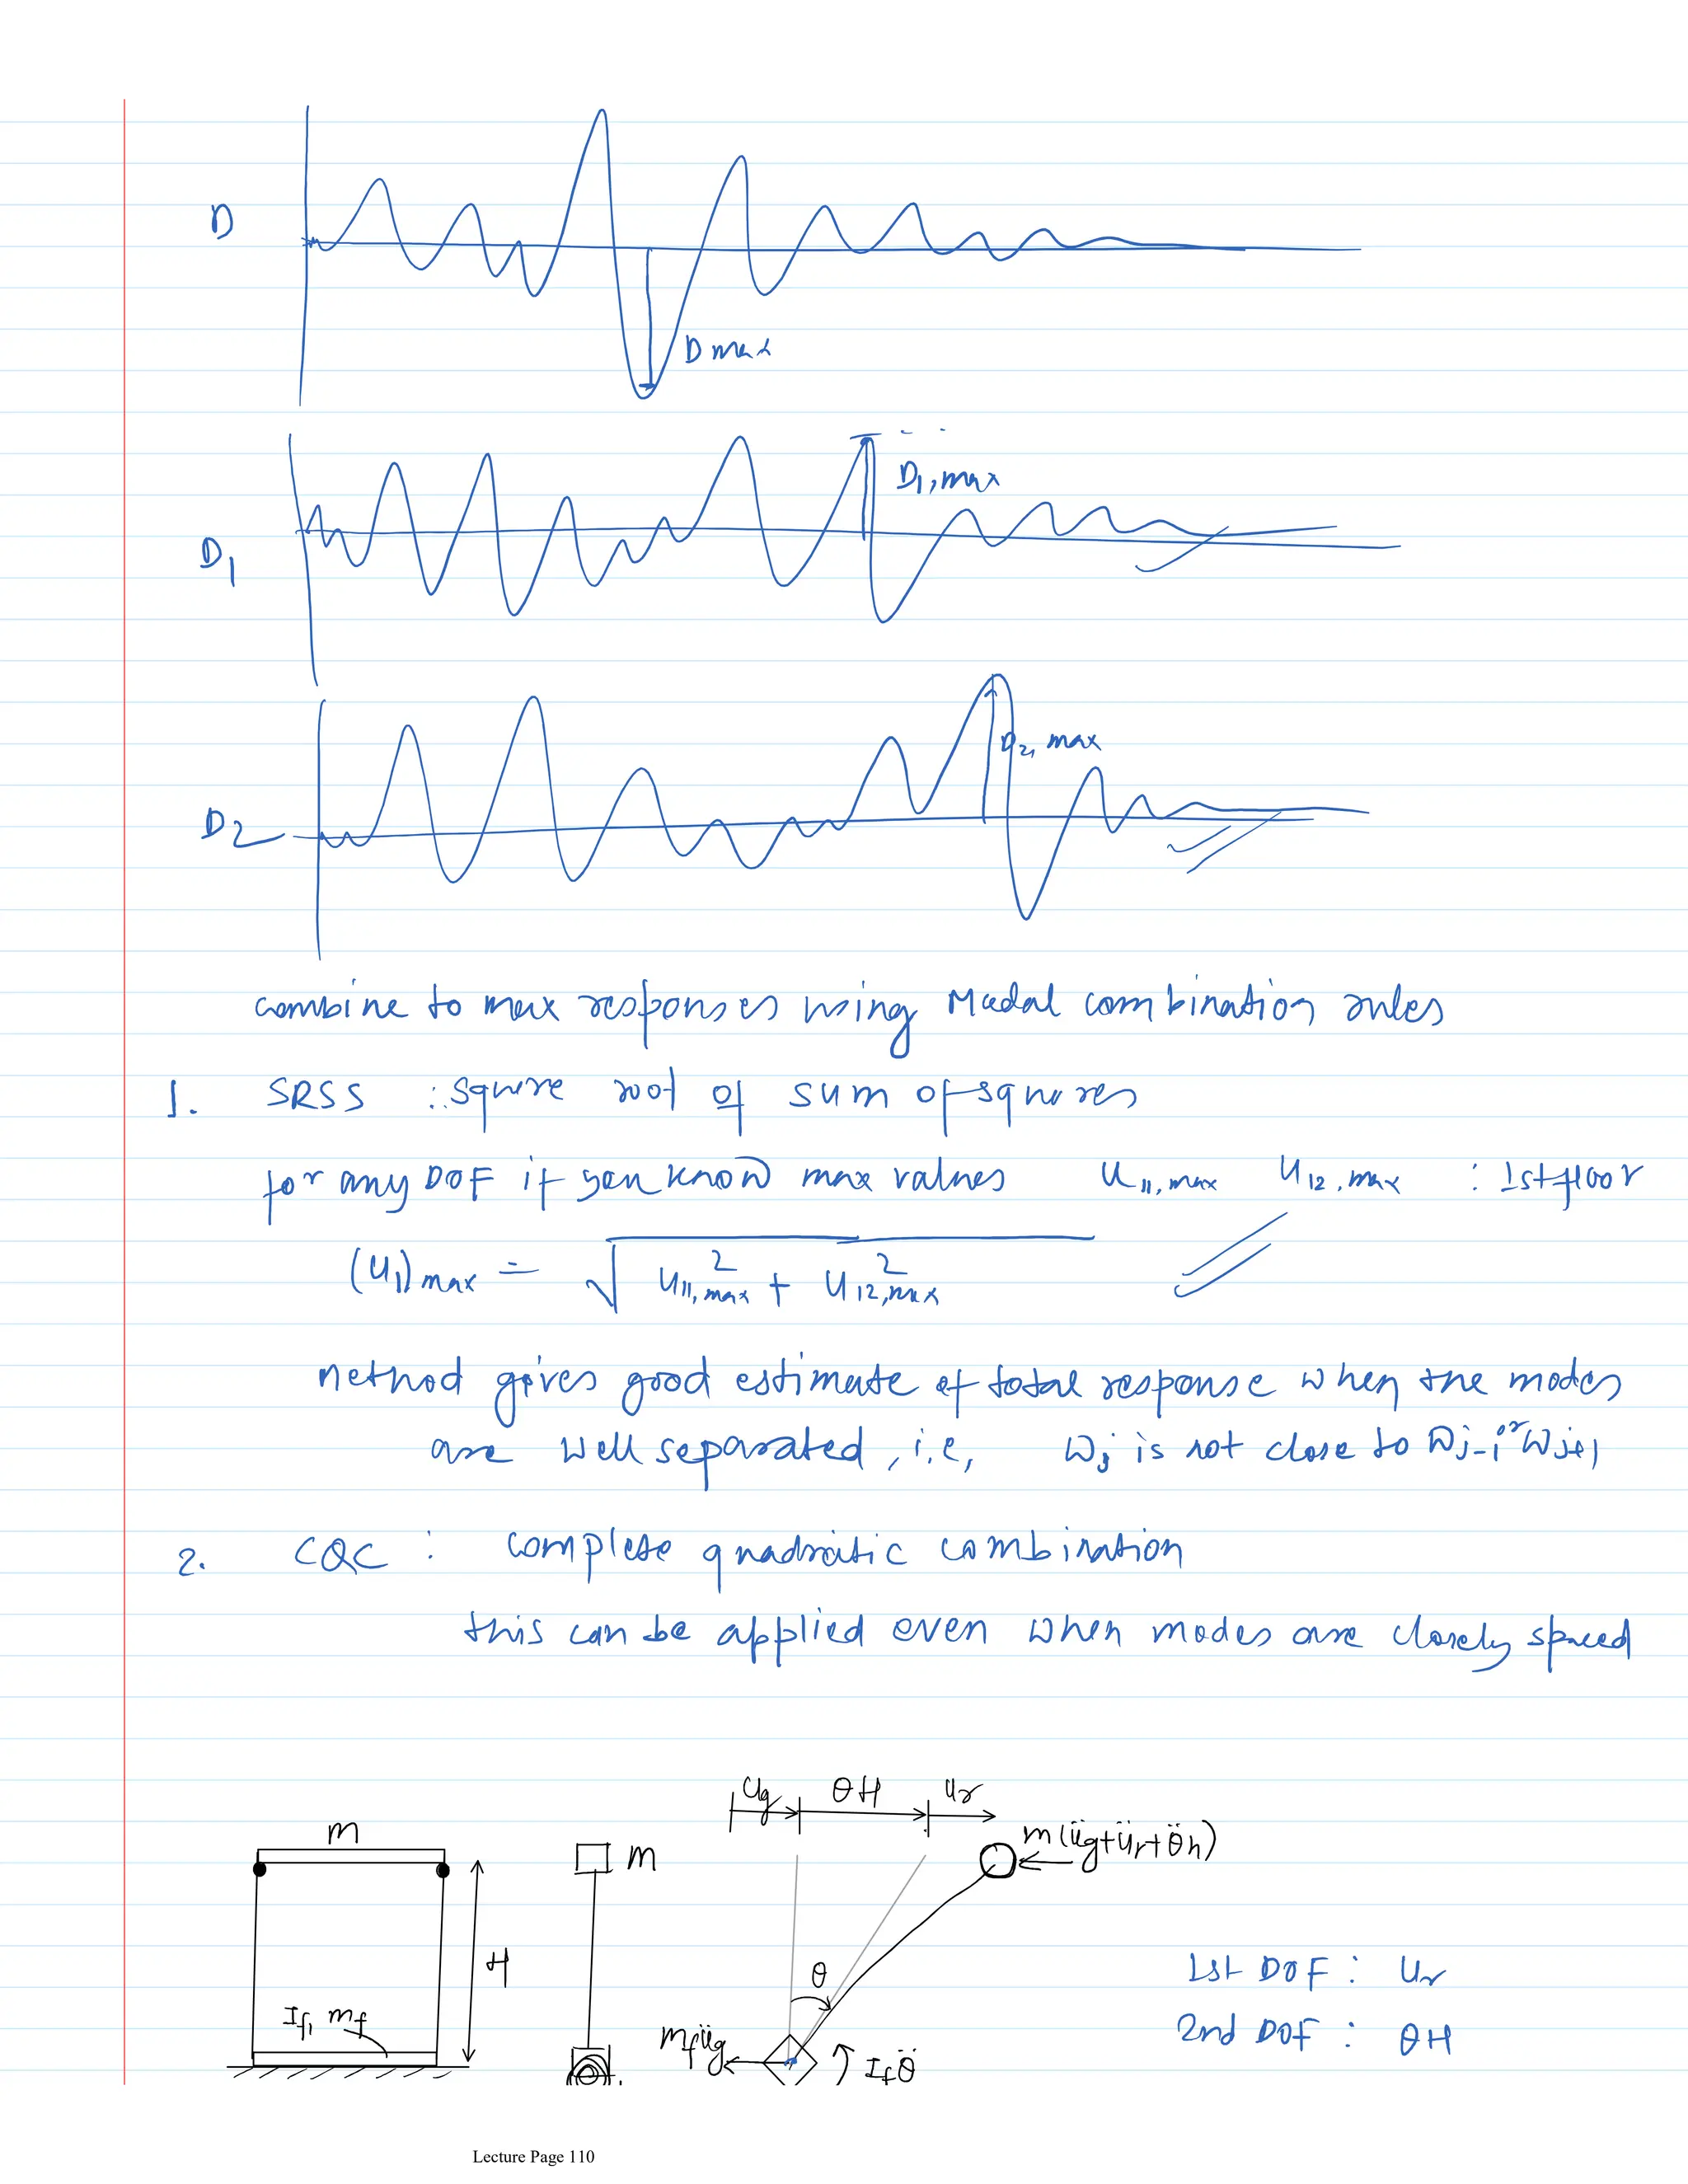 D
D max
D1, max
D1
D2, max
D2
combine to max responses using Modal combination rules
1. SRSS : square root of sum of squares
for any DOF if you know max values u11, max u12, max : 1st floor
(u1)max = √(u²11, max + u²12, max)
method gives good estimate of total response when the modes
are well separated, i.e, ωj is not close to ωj-1 or ωj+1
2. CQC : complete quadratic combination
this can be applied even when modes are closely spaced
ug θH ur
m
m
m(üg+ür+θ̈h)
H
θ
If, mf
mf üg
If θ̈
1st DOF : ur
2nd DOF : θH
Lecture Page 110